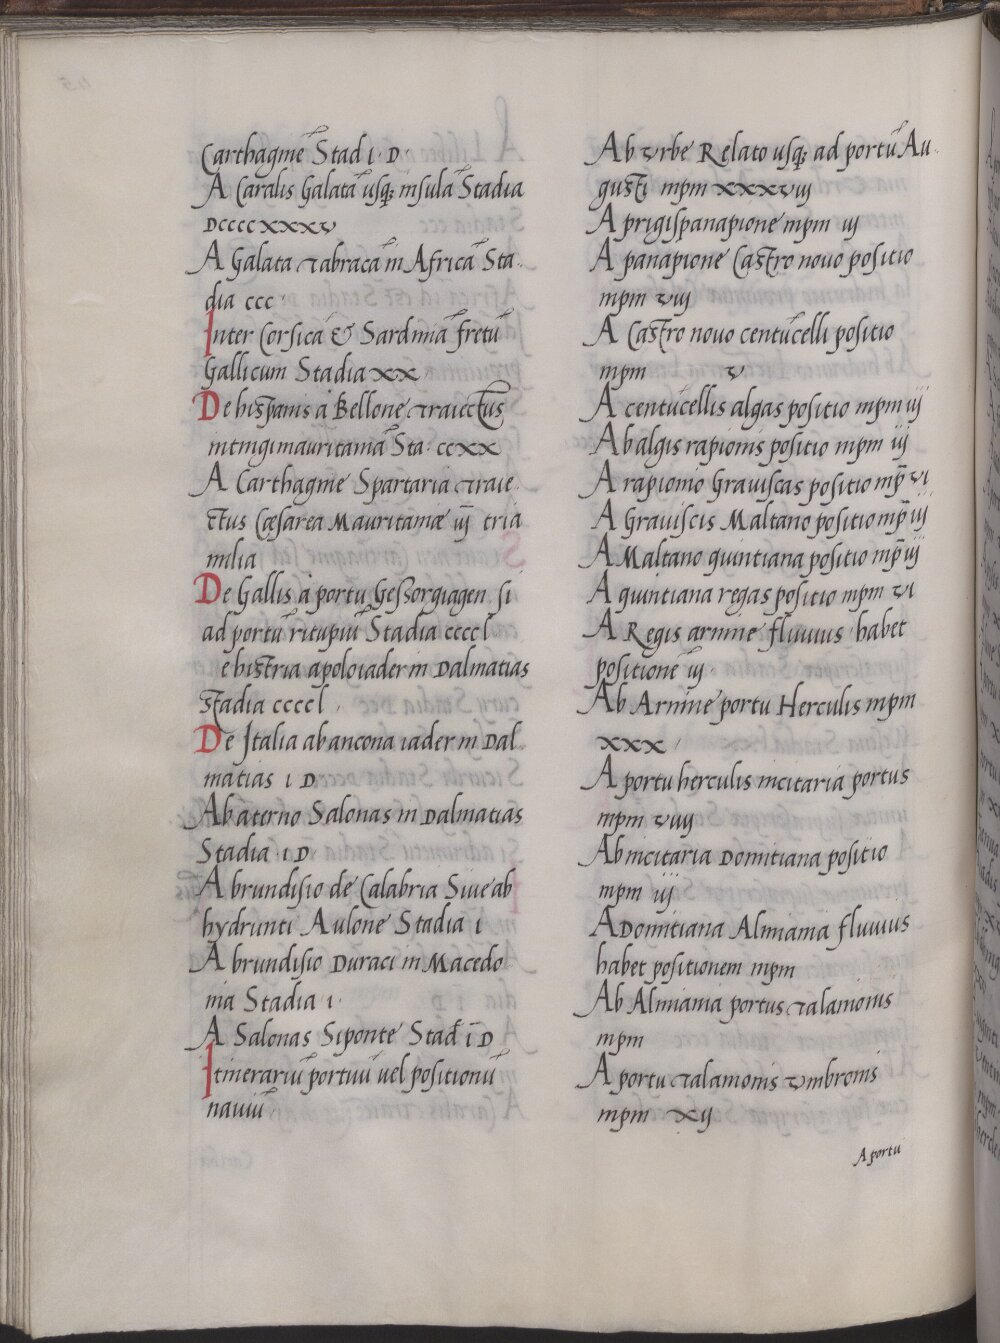 Carthaginē Stad i. D.
A Caralis Galatā usq; insulā Stadia
DCCCCXXXV
A Galata tabracā in Africā Sta.
dia ccc.
Inter Corsicā & Sardiniā fretū
Gallicum Stadia XX
De hispanis à Bellone traiectus
intingimauritaniā Sta. CCXX
A Carthagine Spartaria traie
ctus Cæsarea Mauritaniæ iij tria
milia
De Gallis à portu Gessorgiagen. si
ad portū ritupiū Stadia ccccl
e histria apolo iader in Dalmatias
Stadia ccccl.
De Italia ab ancona iader in Dal
matias i D
Ab aterno Salonas in Dalmatias
Stadia i D
A brundisio de Calabria Siue ab
hydrunti Aulone Stadia i
A brundisio Duraci in Macedo
nia Stadia i.
A Salonas Siponte Stad i D
Itinerariū portuū uel positionū
nauiū
Ab urbe Relato usq; ad portū Au.
gusti mpm XXXVIIJ
A prigispanapione mpm iij
A panapione Castro nouo positio
mpm viij
A Castro nouo centūcelli positio
mpm v
A centūcellis algas positio mpm iij
Ab algis rapionis positio mpm iij
A rapionio Grauiscas positio mp̄ vi
A Grauiscis Maltano positio mp̄ iij
A Maltano quintiana positio mp̄ iij
A quintiana regas positio mpm vi
A Regis arnine fluuius habet
positione iij
Ab Arnine portu Herculis mpm
XXX
A portu herculis incitaria portus
mpm viiij
Ab incitaria Domitiana positio
mpm iij
A Domitiana Alminia fluuius
habet positionem mpm
Ab Alminia portus talamonis
mpm
A portu talamonis umbronis
mpm xij
A portu